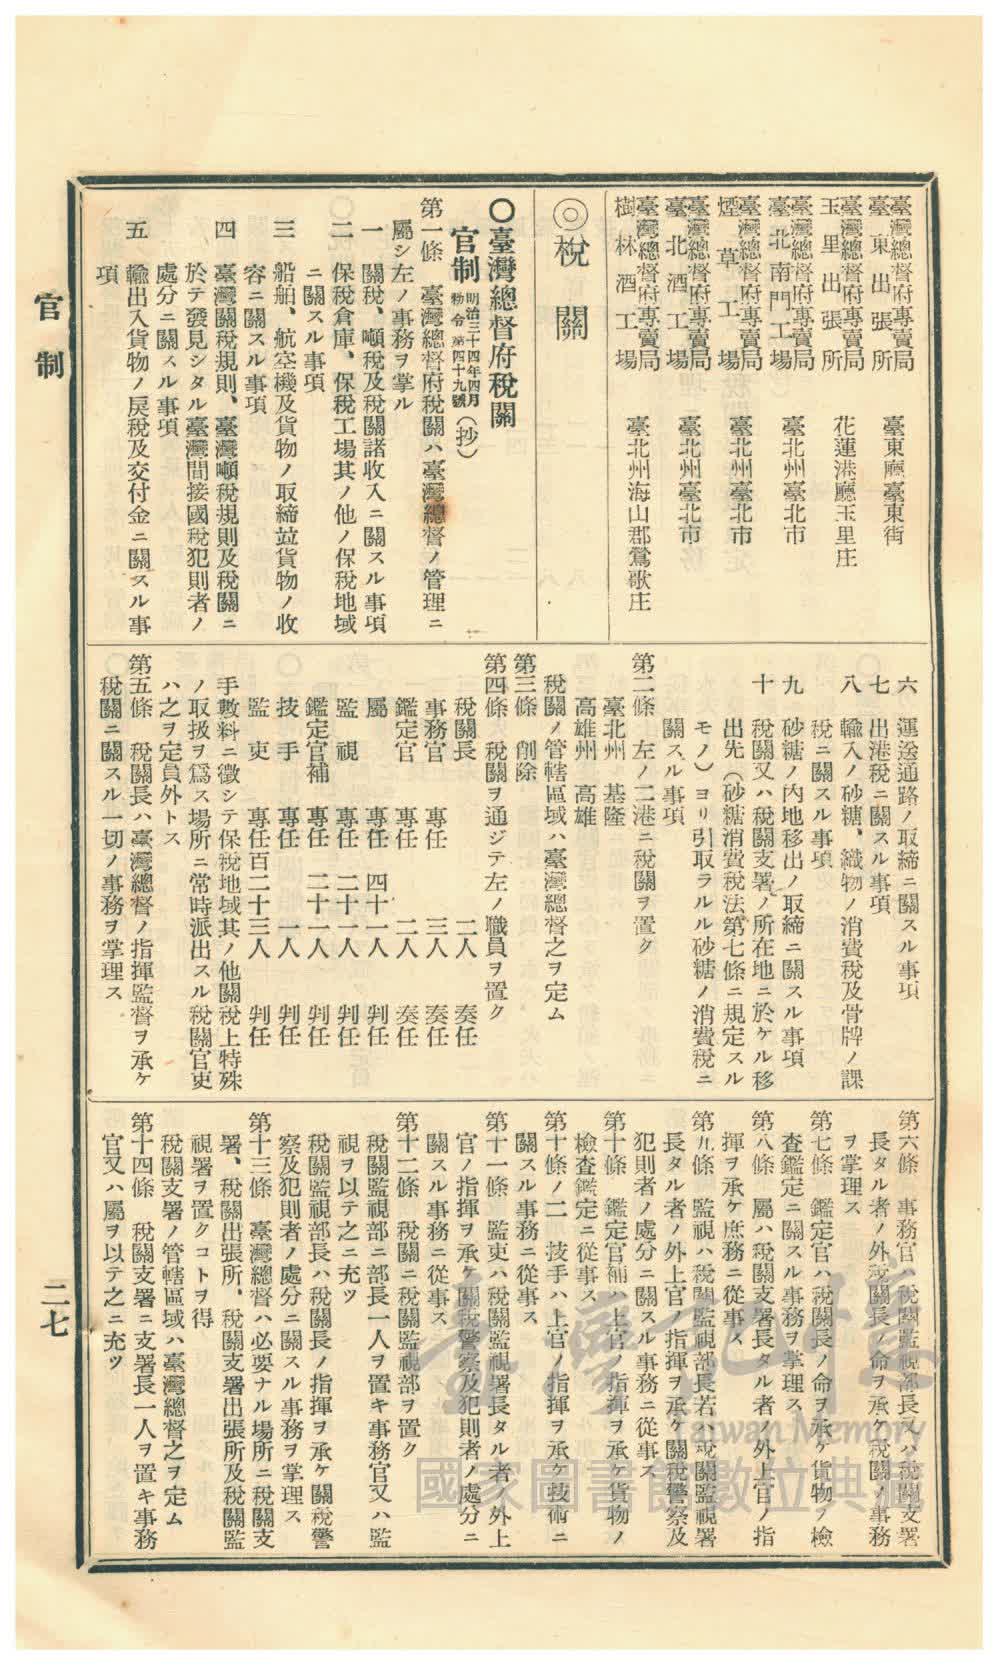 臺灣總督府專賣局
臺東出張所　臺東廳臺東街
臺灣總督府專賣局
玉里出張所　花蓮港廳玉里庄
臺灣總督府專賣局
臺北南門工場　臺北州臺北市
臺灣總督府專賣局
煙草工場　臺北州臺北市
臺灣總督府專賣局
臺北酒工場　臺北州臺北市
臺灣總督府專賣局
樹林酒工場　臺北州海山郡鶯歌庄
◎稅關
〇臺灣總督府稅關
官制 明治三十四年四月
勅令第四十九號（抄）
第一條　臺灣總督府稅關ハ臺灣總督ノ管理ニ
屬シ左ノ事務ヲ掌ル
一　關稅、噸稅及稅關諸收入ニ關スル事項
二　保稅倉庫、保稅工場其ノ他ノ保稅地域
ニ關スル事項
三　船舶、航空機及貨物ノ取締竝貨物ノ收
容ニ關スル事項
四　臺灣關稅規則、臺灣噸稅規則及稅關ニ
於テ發見シタル臺灣間接國稅犯則者ノ
處分ニ關スル事項
五　輸出入貨物ノ戾稅及交付金ニ關スル事
項
六　運送通路ノ取締ニ關スル事項
七　出港稅ニ關スル事項
八　輸入ノ砂糖、織物ノ消費稅及骨牌ノ課
稅ニ關スル事項
九　砂糖ノ內地移出ノ取締ニ關スル事項
十　稅關又ハ稅關支署ノ所在地ニ於ケル移
出先（砂糖消費稅法第七條ニ規定スル
モノ）ヨリ引取ラルル砂糖ノ消費稅ニ
關スル事項
第二條　左ノ二港ニ稅關ヲ置ク
臺北州　基隆
高雄州　高雄
稅關ノ管轄區域ハ臺灣總督之ヲ定ム
第三條　削除
第四條　稅關ヲ通ジテ左ノ職員ヲ置ク
稅關長　二人　奏任
事務官　專任　三人　奏任
鑑定官　專任　二人　奏任
屬　專任　四十一人　判任
監視　專任　二十一人　判任
鑑定官補　專任　二十一人　判任
技手　專任　一人　判任
監吏　專任百二十三人　判任
手數料ニ徵シテ保稅地域其ノ他關稅上特殊
ノ取扱ヲ爲ス場所ニ常時派出スル稅關官吏
ハ之ヲ定員外トス
第五條　稅關長ハ臺灣總督ノ指揮監督ヲ承ケ
稅關ニ關スル一切ノ事務ヲ掌理ス
第六條　事務官ハ稅關監視部長又ハ稅關支署
長タル者ノ外稅關長ノ命ヲ承ケ稅關ノ事務
ヲ掌理ス
第七條　鑑定官ハ稅關長ノ命ヲ承ケ貨物ノ檢
查鑑定ニ關スル事務ヲ掌理ス
第八條　屬ハ稅關支署長タル者ノ外上官ノ指
揮ヲ承ケ庶務ニ從事ス
第九條　監視ハ稅關監視部長若ハ稅關監視署
長タル者ノ外上官ノ指揮ヲ承ケ關稅警察及
犯則者ノ處分ニ關スル事務ニ從事ス
第十條　鑑定官補ハ上官ノ指揮ヲ承ケ貨物ノ
檢查鑑定ニ從事ス
第十條ノ二　技手ハ上官ノ指揮ヲ承ケ技術ニ
關スル事務ニ從事ス
第十一條　監吏ハ稅關監視署長タル者ノ外上
官ノ指揮ヲ承ケ關稅警察及犯則者ノ處分ニ
關スル事務ニ從事ス
第十二條　稅關ニ稅關監視部ヲ置ク
稅關監視部ニ部長一人ヲ置キ事務官又ハ監
視ヲ以テ之ニ充ツ
稅關監視部長ハ稅關長ノ指揮ヲ承ケ關稅警
察及犯則者ノ處分ニ關スル事務ヲ掌理ス
第十三條　臺灣總督ハ必要ナル場所ニ稅關支
署、稅關出張所、稅關支署出張所及稅關監
視署ヲ置クコトヲ得
稅關支署ノ管轄區域ハ臺灣總督之ヲ定ム
第十四條　稅關支署ニ支署長一人ヲ置キ事務
官又ハ屬ヲ以テ之ニ充ツ
官制
二七
臺灣記憶
Taiwan Memory
國家圖書館數位典藏